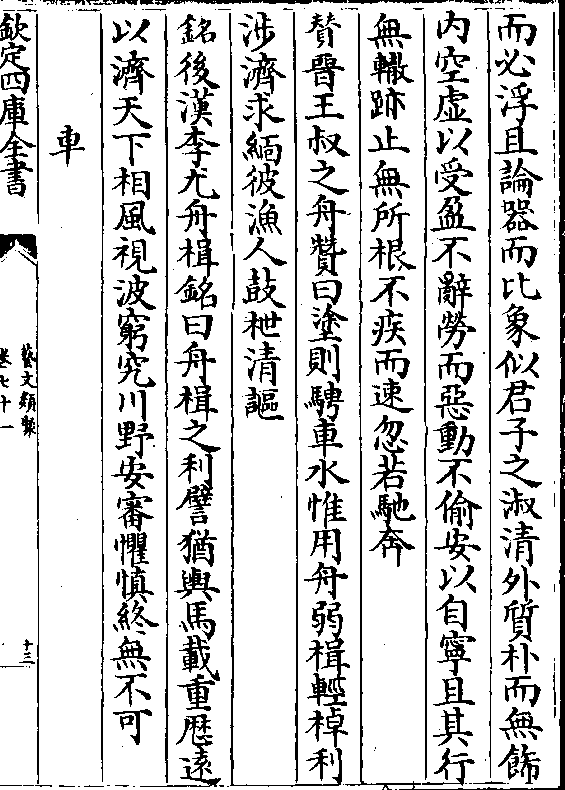 而必浮且論器而比象似君子之淑清外質朴而無飾
内空虚以受盈不辭勞而惡動不偷安以自寧且其行
無轍跡止無所根不疾而速忽若馳奔
賛晉王叔之舟贊曰塗則騁車水惟用舟弱楫輕棹利
涉濟求緬彼漁人鼓枻清謳
銘後漢李尤舟楫銘曰舟楫之利譬猶輿馬載重歴逺
以濟天下相風視波窮究川野安審懼慎終無不可
車
欽定四庫全書
藝文類聚
卷七十一
十三